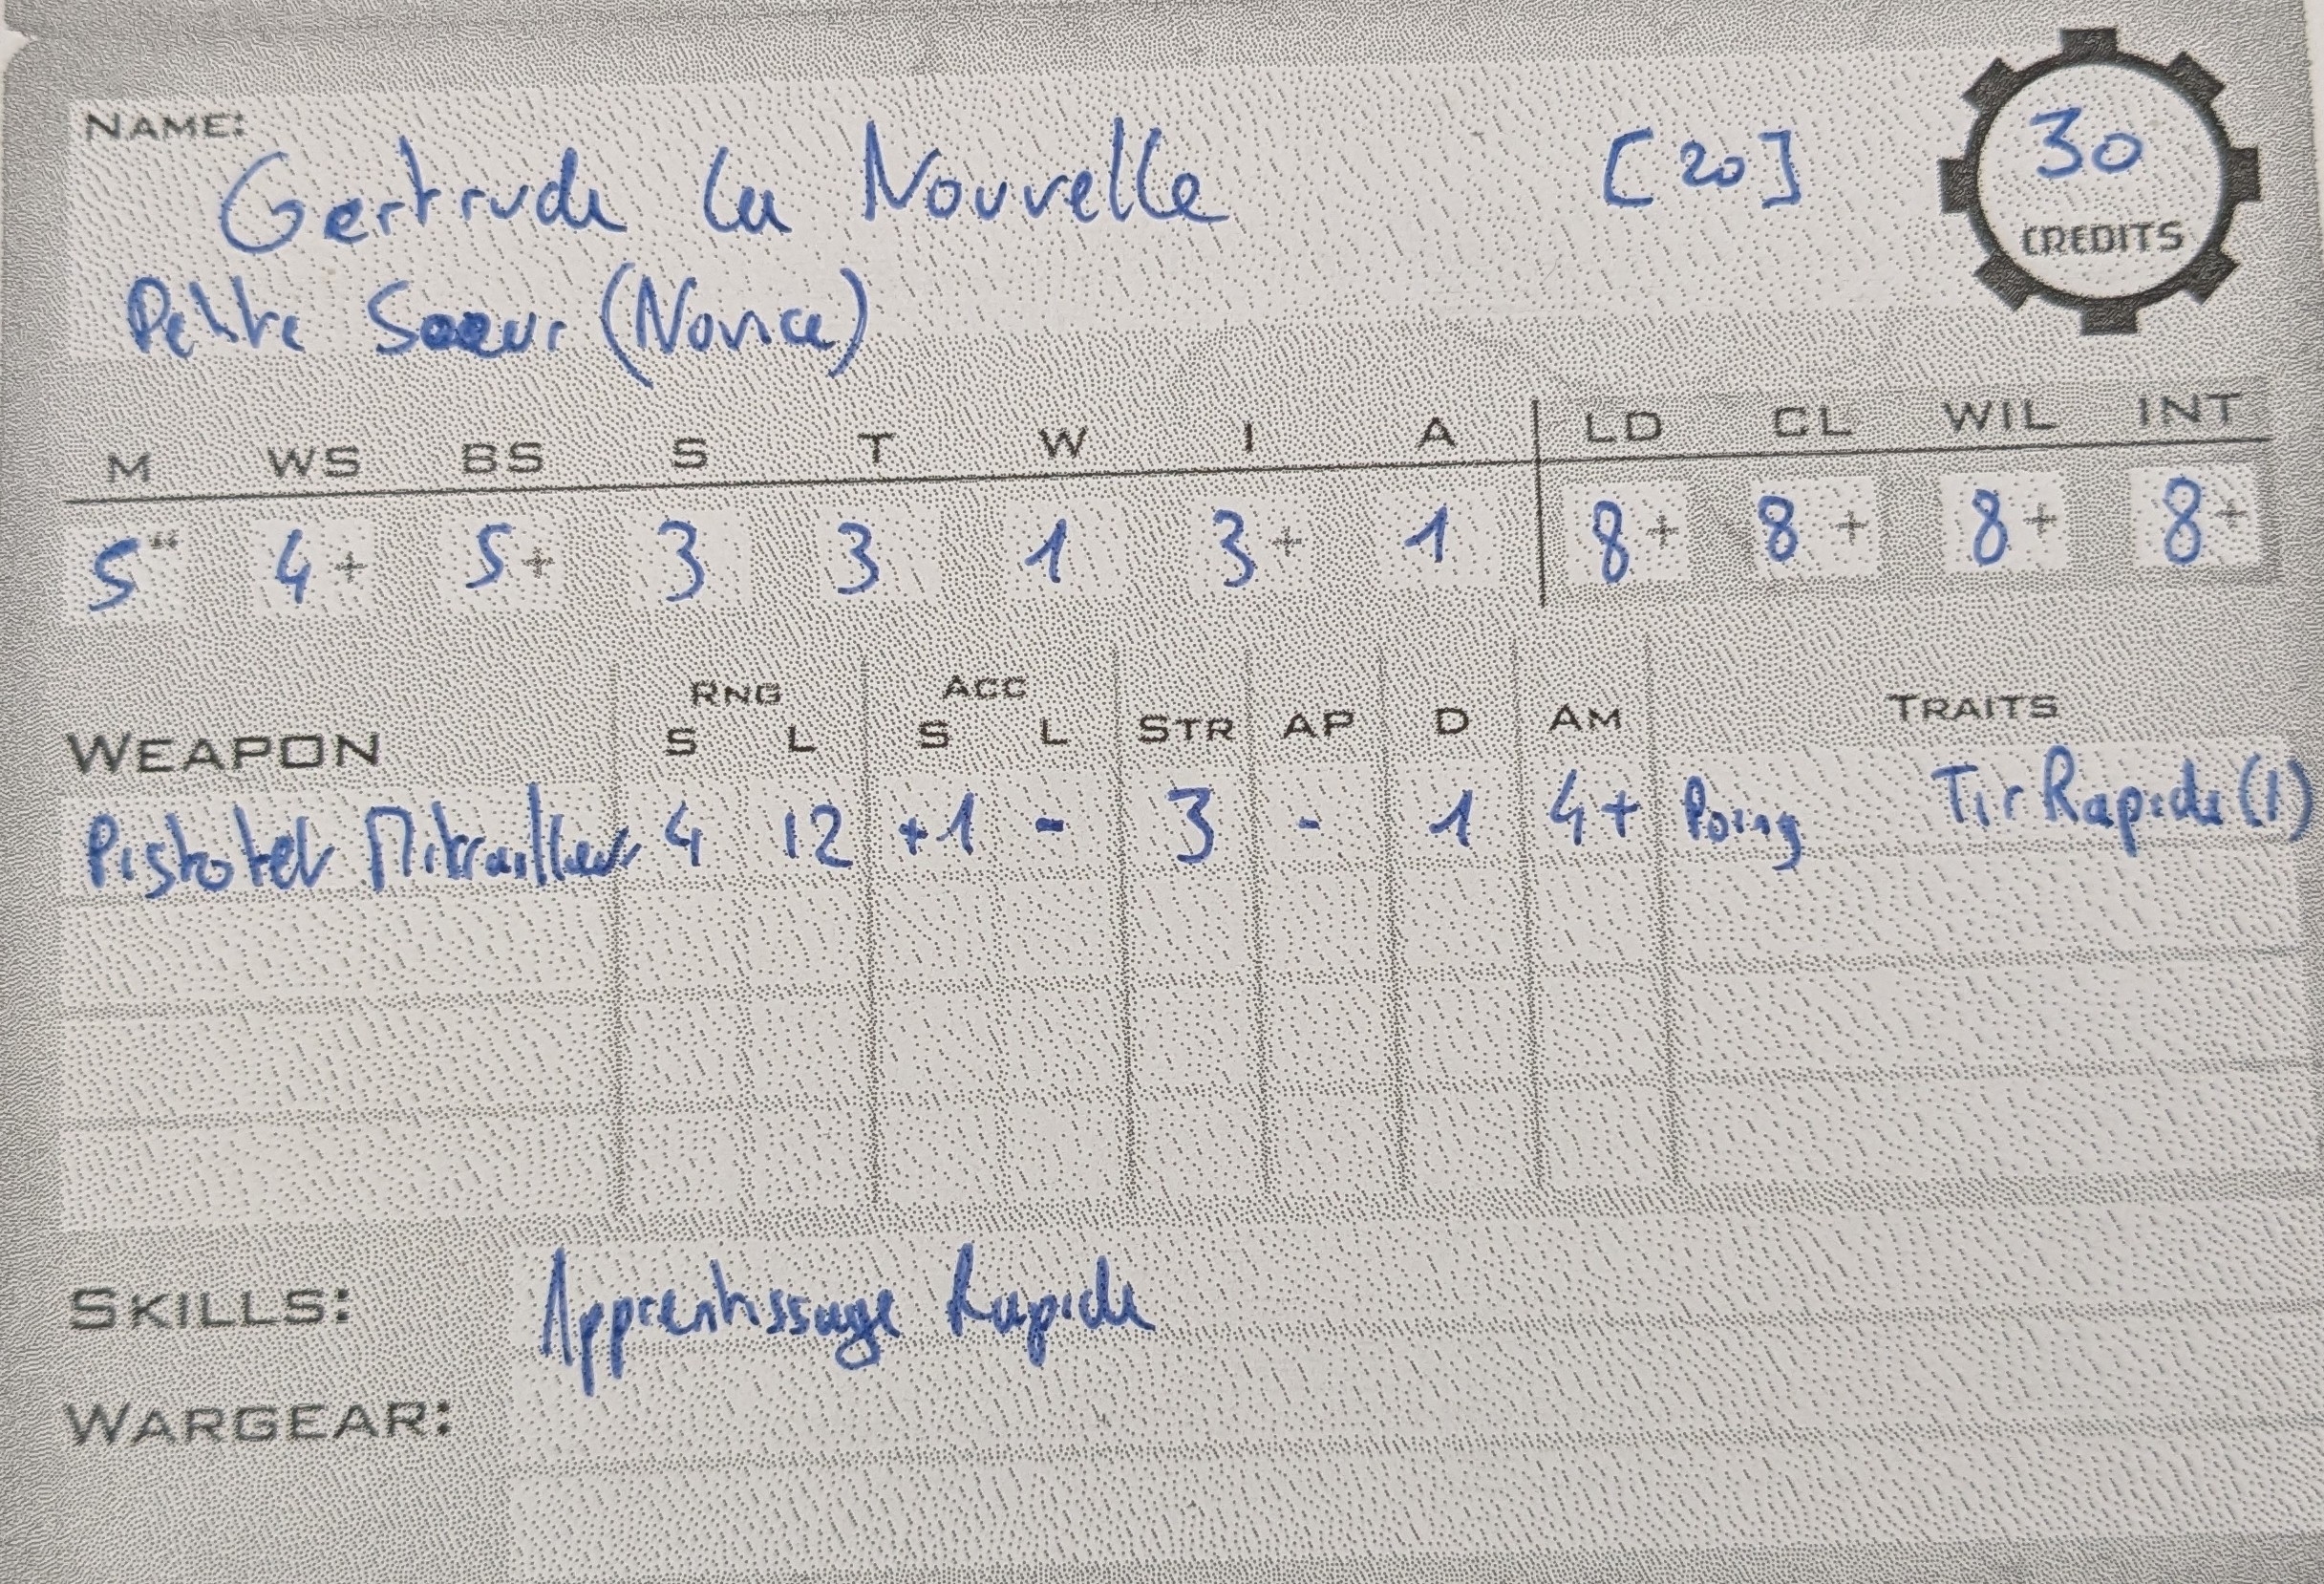 NAME:
Gertrude la Nouvelle [20] 30
CREDITS
Petite Soeur (Novice)
M WS BS S T W I A LD CL WIL INT
5" 4+ 5+ 3 3 1 3+ 1 8+ 8+ 8+ 8+
RNG ACC
WEAPON S L S L STR AP D AM TRAITS
Pistolet Mitrailleur 4 12 +1 - 3 - 1 4+ Poing Tir Rapide (1)
SKILLS: Apprentissage Rapide
WARGEAR: